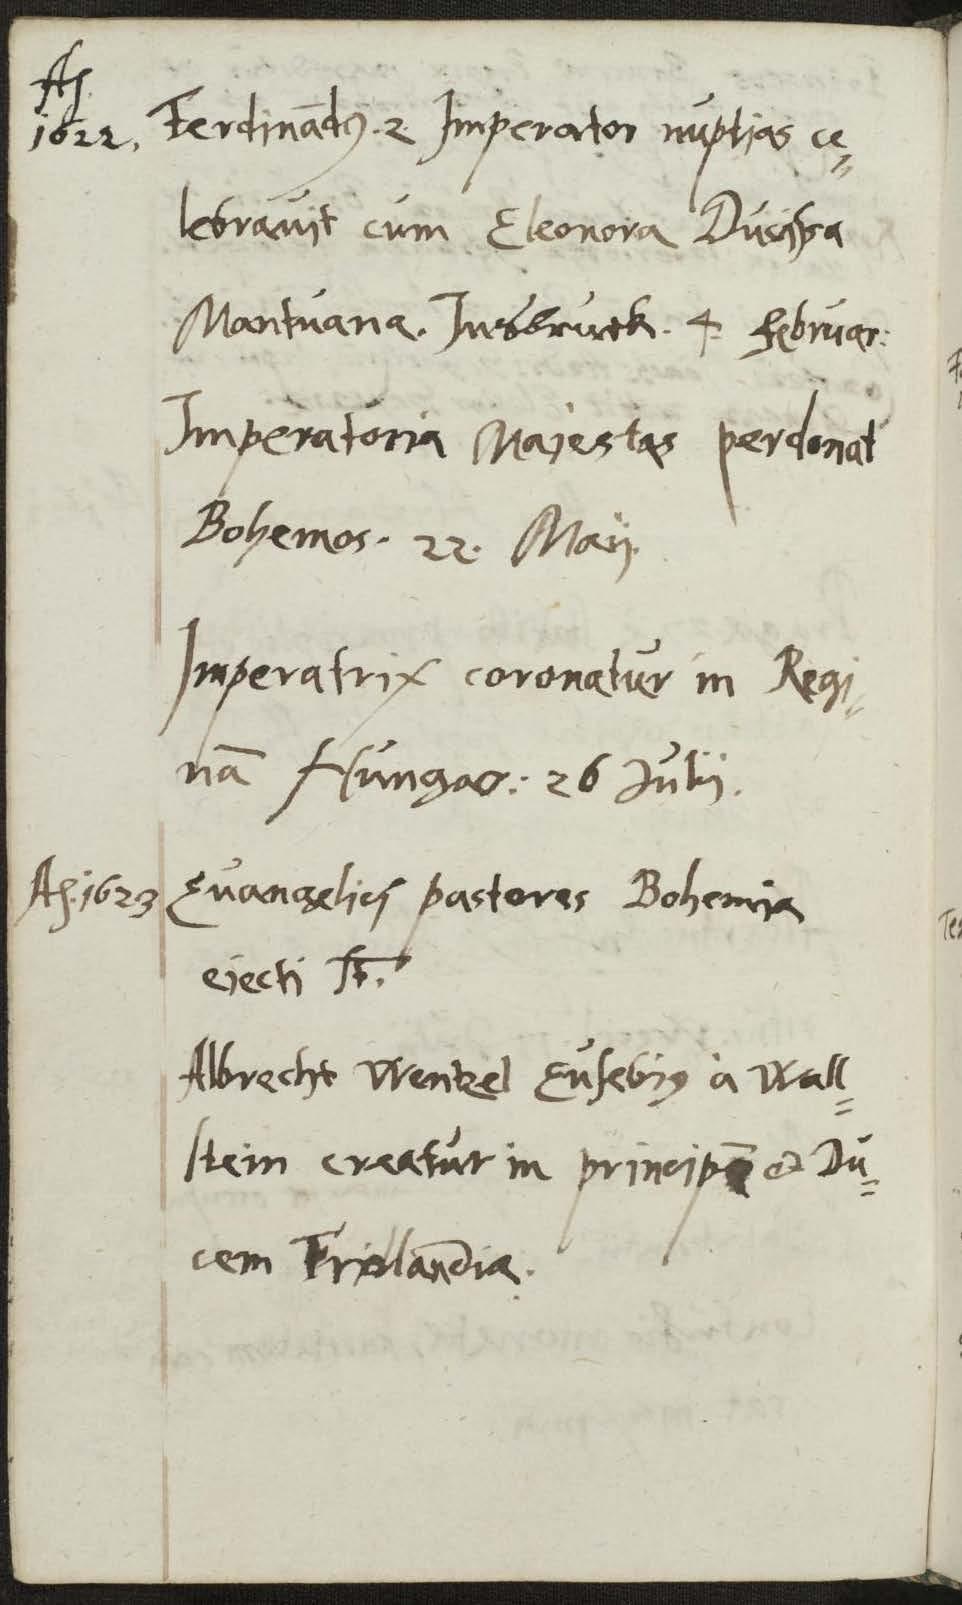 Aō.
1622. Ferdinādꝯ. 2 Imperator nuptias ce⸗
lebravit cum Eleonora Ducissa
Mantuana. Insbruck. 4. Februar:
Imperatoria Majestas perdonat
Bohemos. 22. Maij.
Imperatrix coronatur in Regi⸗
nā Hungar: 26 Julij.
Aō. 1623 Evangelici pastores Bohemia
ejecti st.
Albrecht Wentzel Eusebiꝯ à Wall⸗
stein creatur in principē et Du⸗
cem Fridlandia.